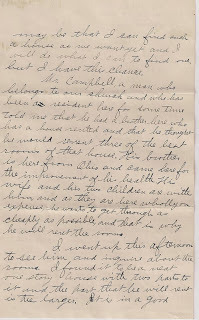 may be that I can find such
a house as we want yet and I
will do what I can to find one,
but I have this chance.
Mr. Campbell, a man who
belongs to our church and who has
been a resident here for some time
told me that he has a brother here who
has a house rented and that he thought
he would rent three of the best
rooms of that house. His brother
is here from Ohio and came here for
the improvement of his health. His
wife and his two children are with
him and as they are here wholly on
expense he wants to get through as
cheaply as possible and that is why
he will rent the rooms.
I went up this afternoon
to see him and inquire about the
rooms. I found it to be a neat
one story house with two parts to
it and the part that he will rent
is the larger. It is in a good